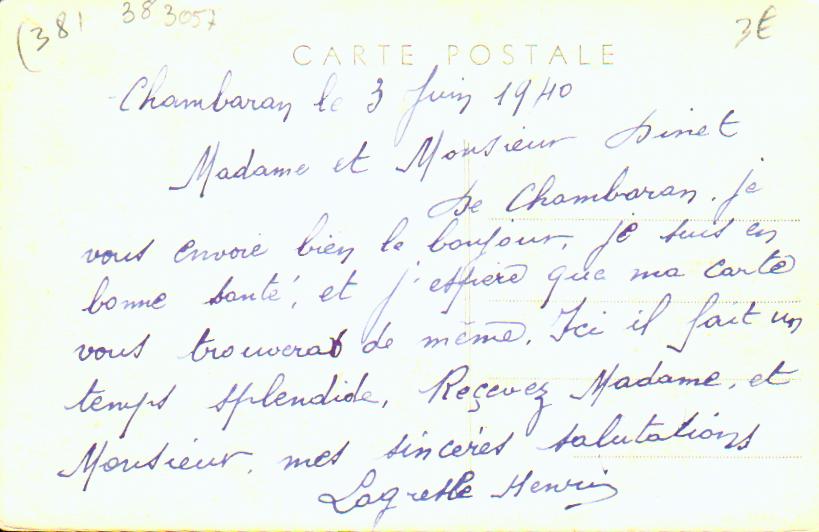 (381 38 3057
3€
CARTE POSTALE
Chambaran le 3 Juin 1940
Madame et Monsieur Dinet
De Chambaran. je
vous envoie bien le bonjour, je suis en
bonne santé, et j'espère que ma carte
vous trouverat de même. Ici il fait un
temps splendide. Reçevez Madame, et
Monsieur, mes sincères salutations
Henri